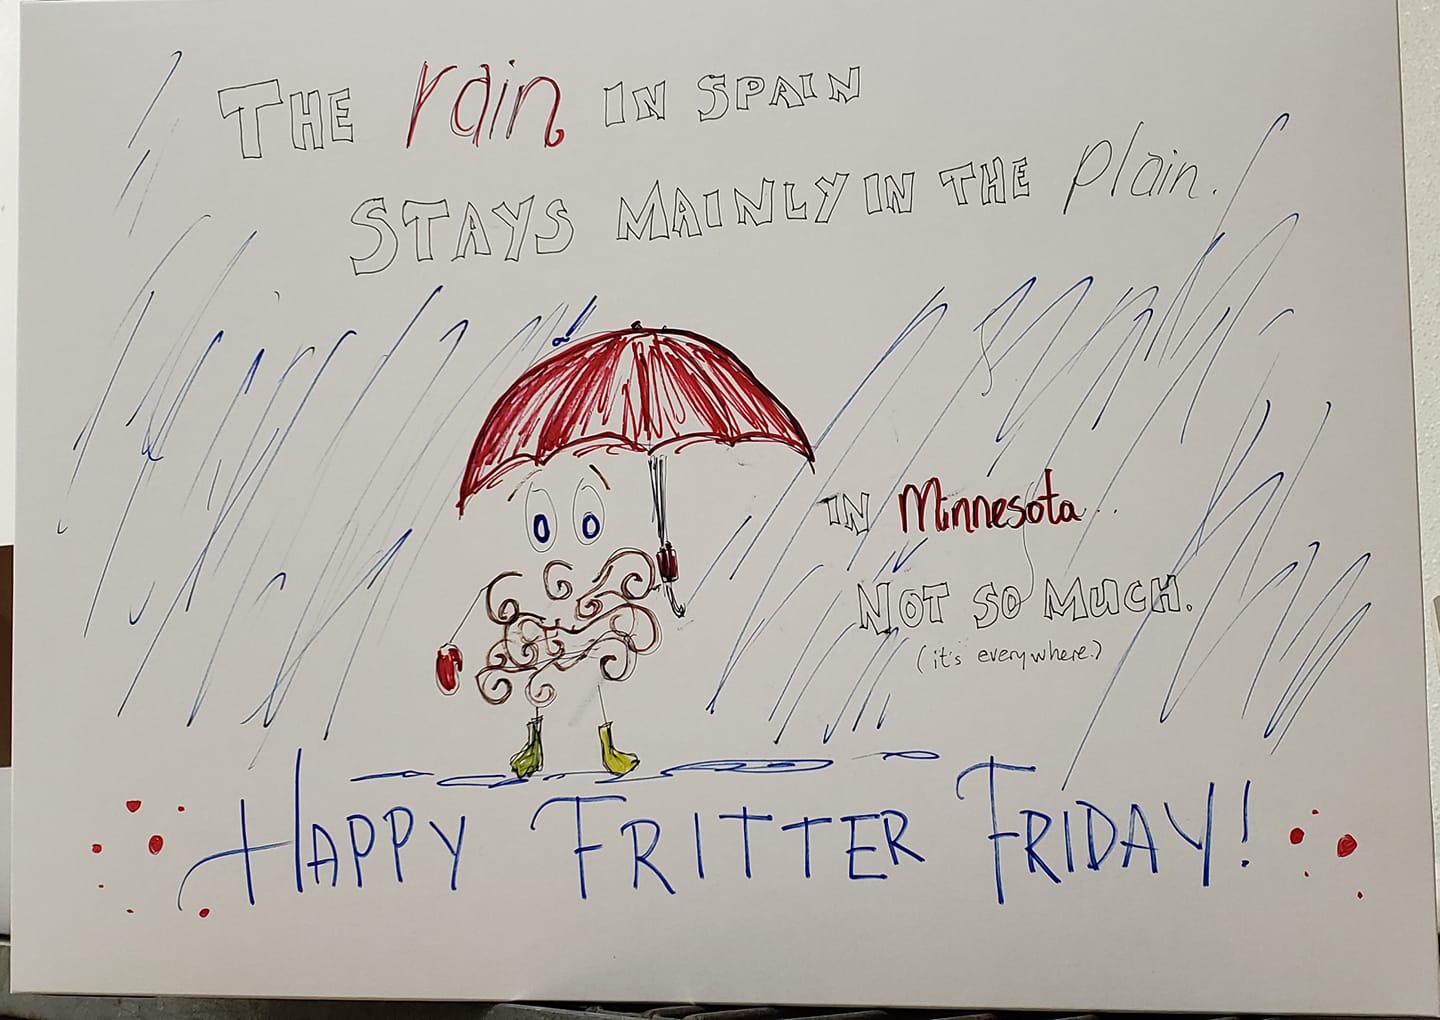 THE rain IN SPAIN
STAYS MAINLY IN THE plain.
IN Minnesota...
NOT SO MUCH.
(it's everywhere.)
HAPPY FRITTER FRIDAY!